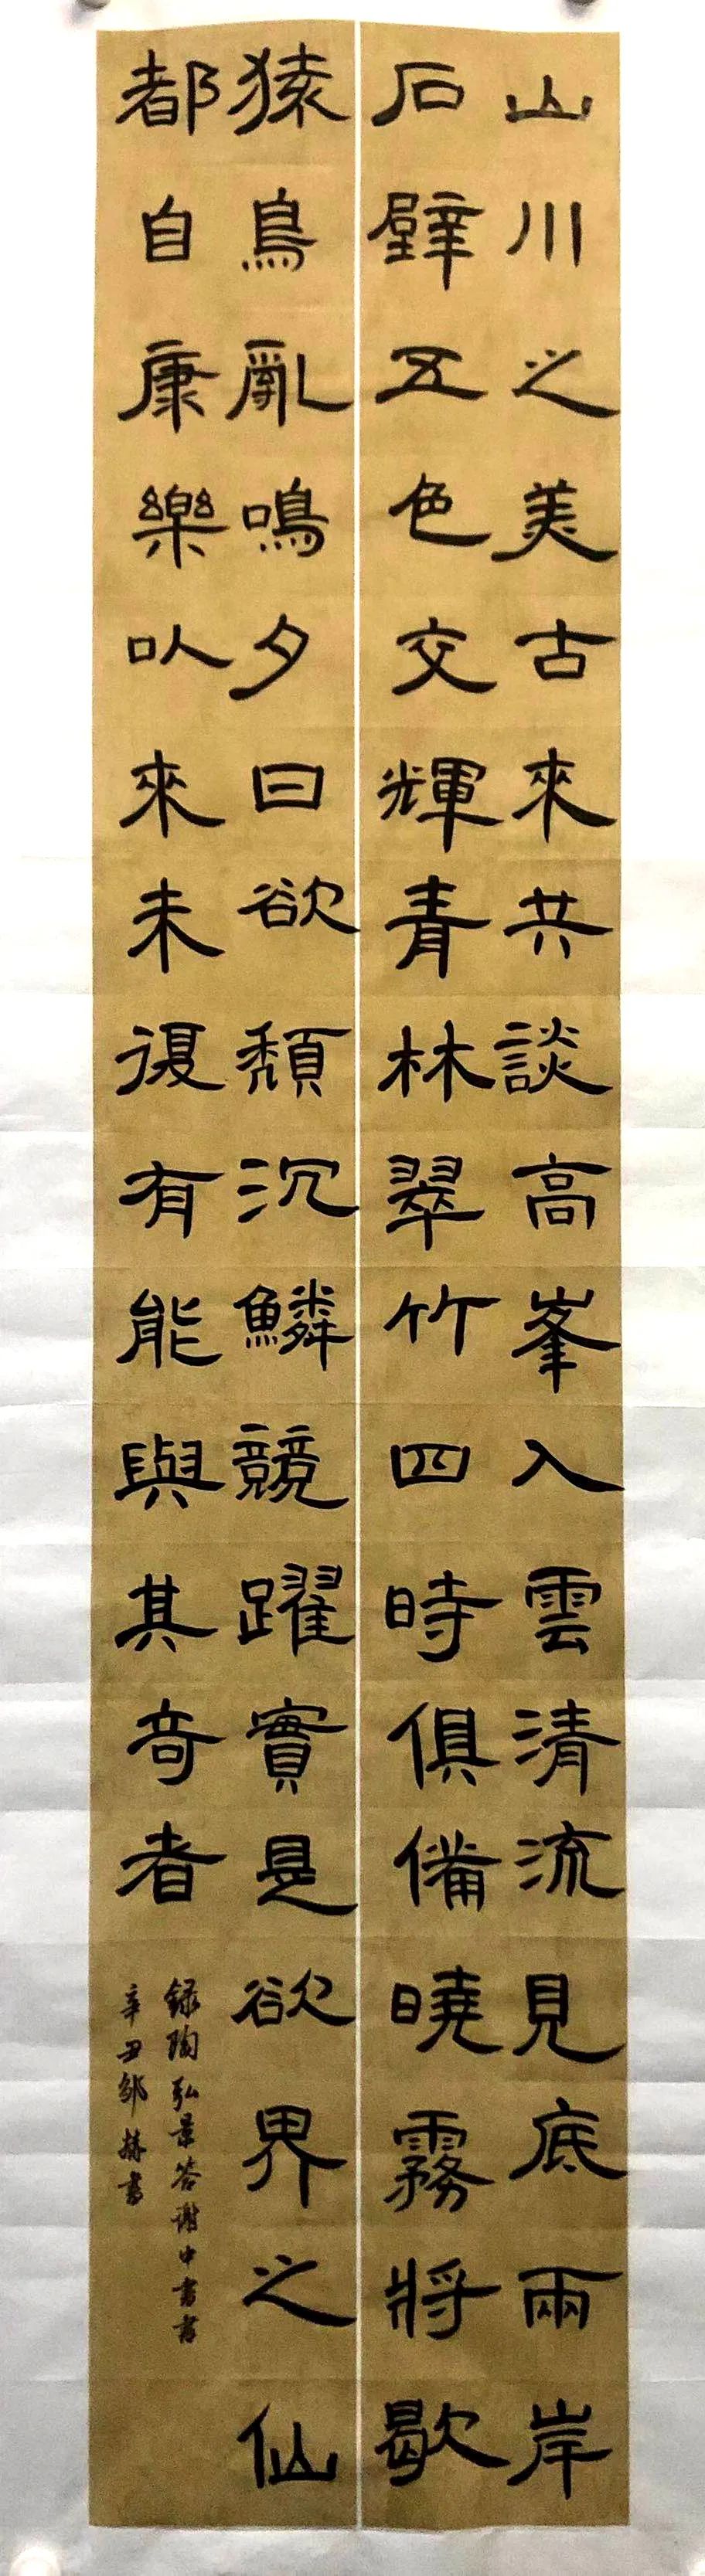 山川之美古來共談高峯入雲清流見底兩岸
石壁五色交輝青林翠竹四時俱備曉霧將歇
猿鳥亂鳴夕日欲頹沉鱗競躍實是欲界之仙
都自康樂以來未復有能與其奇者
録陶弘景答謝中書書
辛丑邹書